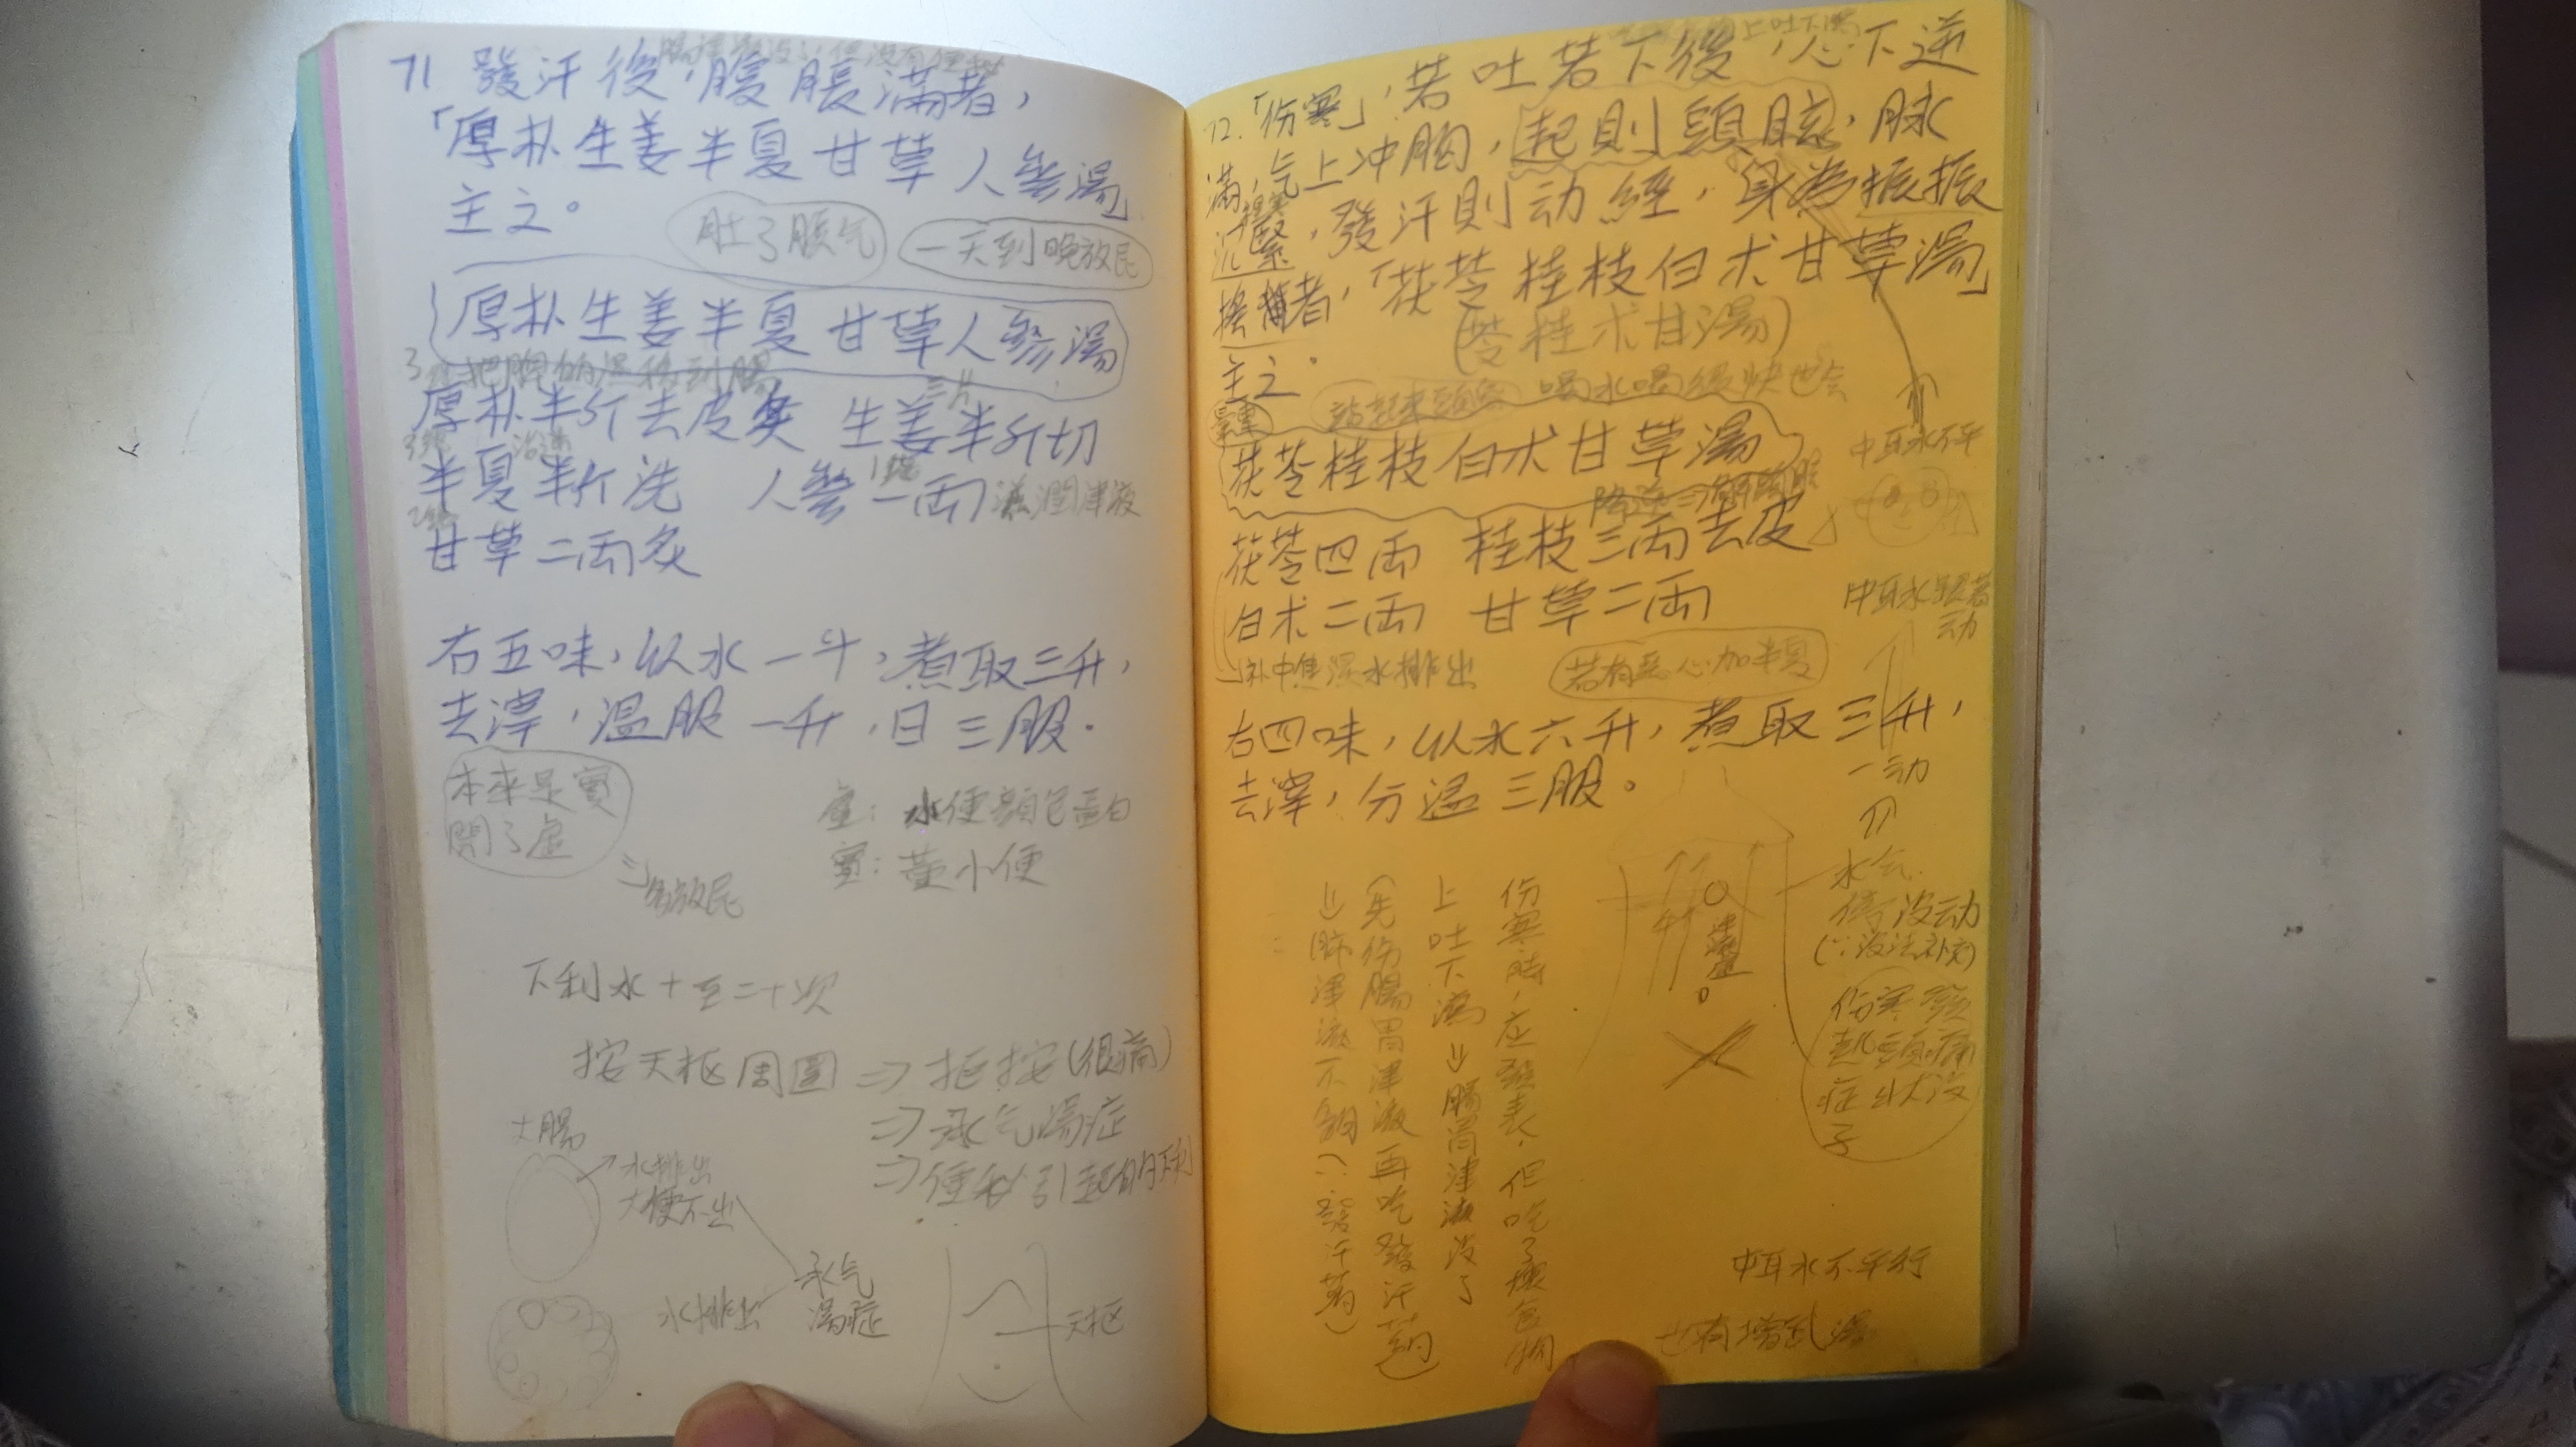 71 發汗後，腹脹滿者，
「厚朴生姜半夏甘草人參湯」
主之。
肚子脹气
一天到晚放屁
厚朴生姜半夏甘草人參湯
三片
厚朴半斤去皮炙 生姜半斤切
3錢
1錢
半夏半斤洗 人參一兩 滋潤津液
2錢
甘草二兩炙
右五味，以水一斗，煮取三升，
去滓，溫服一升，日三服。
本來是實
關了虛
虛：小便顏色蛋白
實：黃小便
⇒多放屁
下利水十至二十次
按天枢周圍 ⇒ 拒按(很痛)
⇒ 承气湯症
大腸
水排出
大便不出
承气
湯症
水排出
天枢
72.「伤寒」，若吐若下後，心下逆
滿，气上冲胸，起則頭眩，脉
沉緊，發汗則动經，身為振振
搖者，「茯苓桂枝白朮甘草湯」
(苓桂朮甘湯)
主之。
站起來頭暈 喝水喝很快也会
茯苓桂枝白朮甘草湯
中耳水不平
茯苓四兩 桂枝三兩去皮
白朮二兩 甘草二兩
中耳水跟著
动
補中焦濕水排出
若有恶心加半夏
右四味，以水六升，煮取三升，
去滓，分溫三服。
一动
水气
停 没动
(∵没法补充)
伤寒時，应發表，但吃了
上吐下瀉 ⇒ 腸胃津液没了
(先伤腸胃津液再吃發汗药)
⇒ 肺津液不夠(∵發汗药)
中耳水不平行